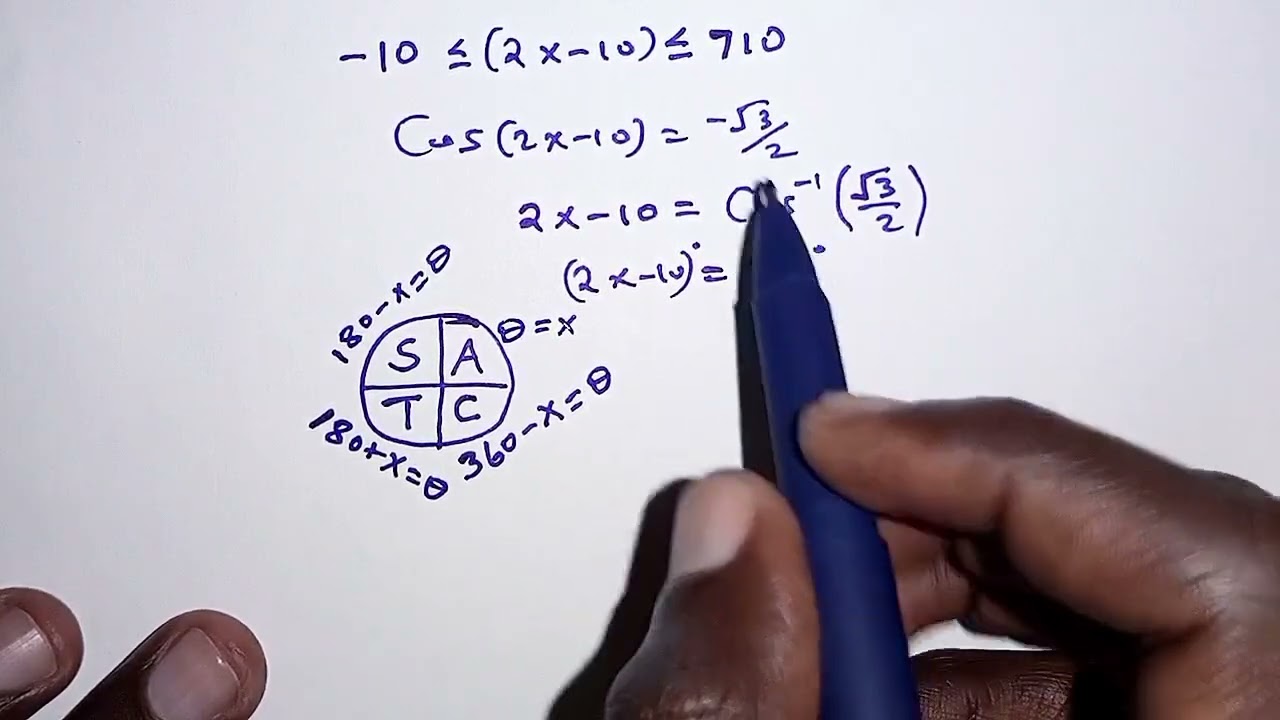 -10 ≤ (2x-10) ≤ 710
Cos(2x-10) = -√3/2
2x-10 = ⁻¹(√3/2)
(2x-10)° = °
180-x=θ
θ=x
S A
T C
180+x=θ
360-x=θ